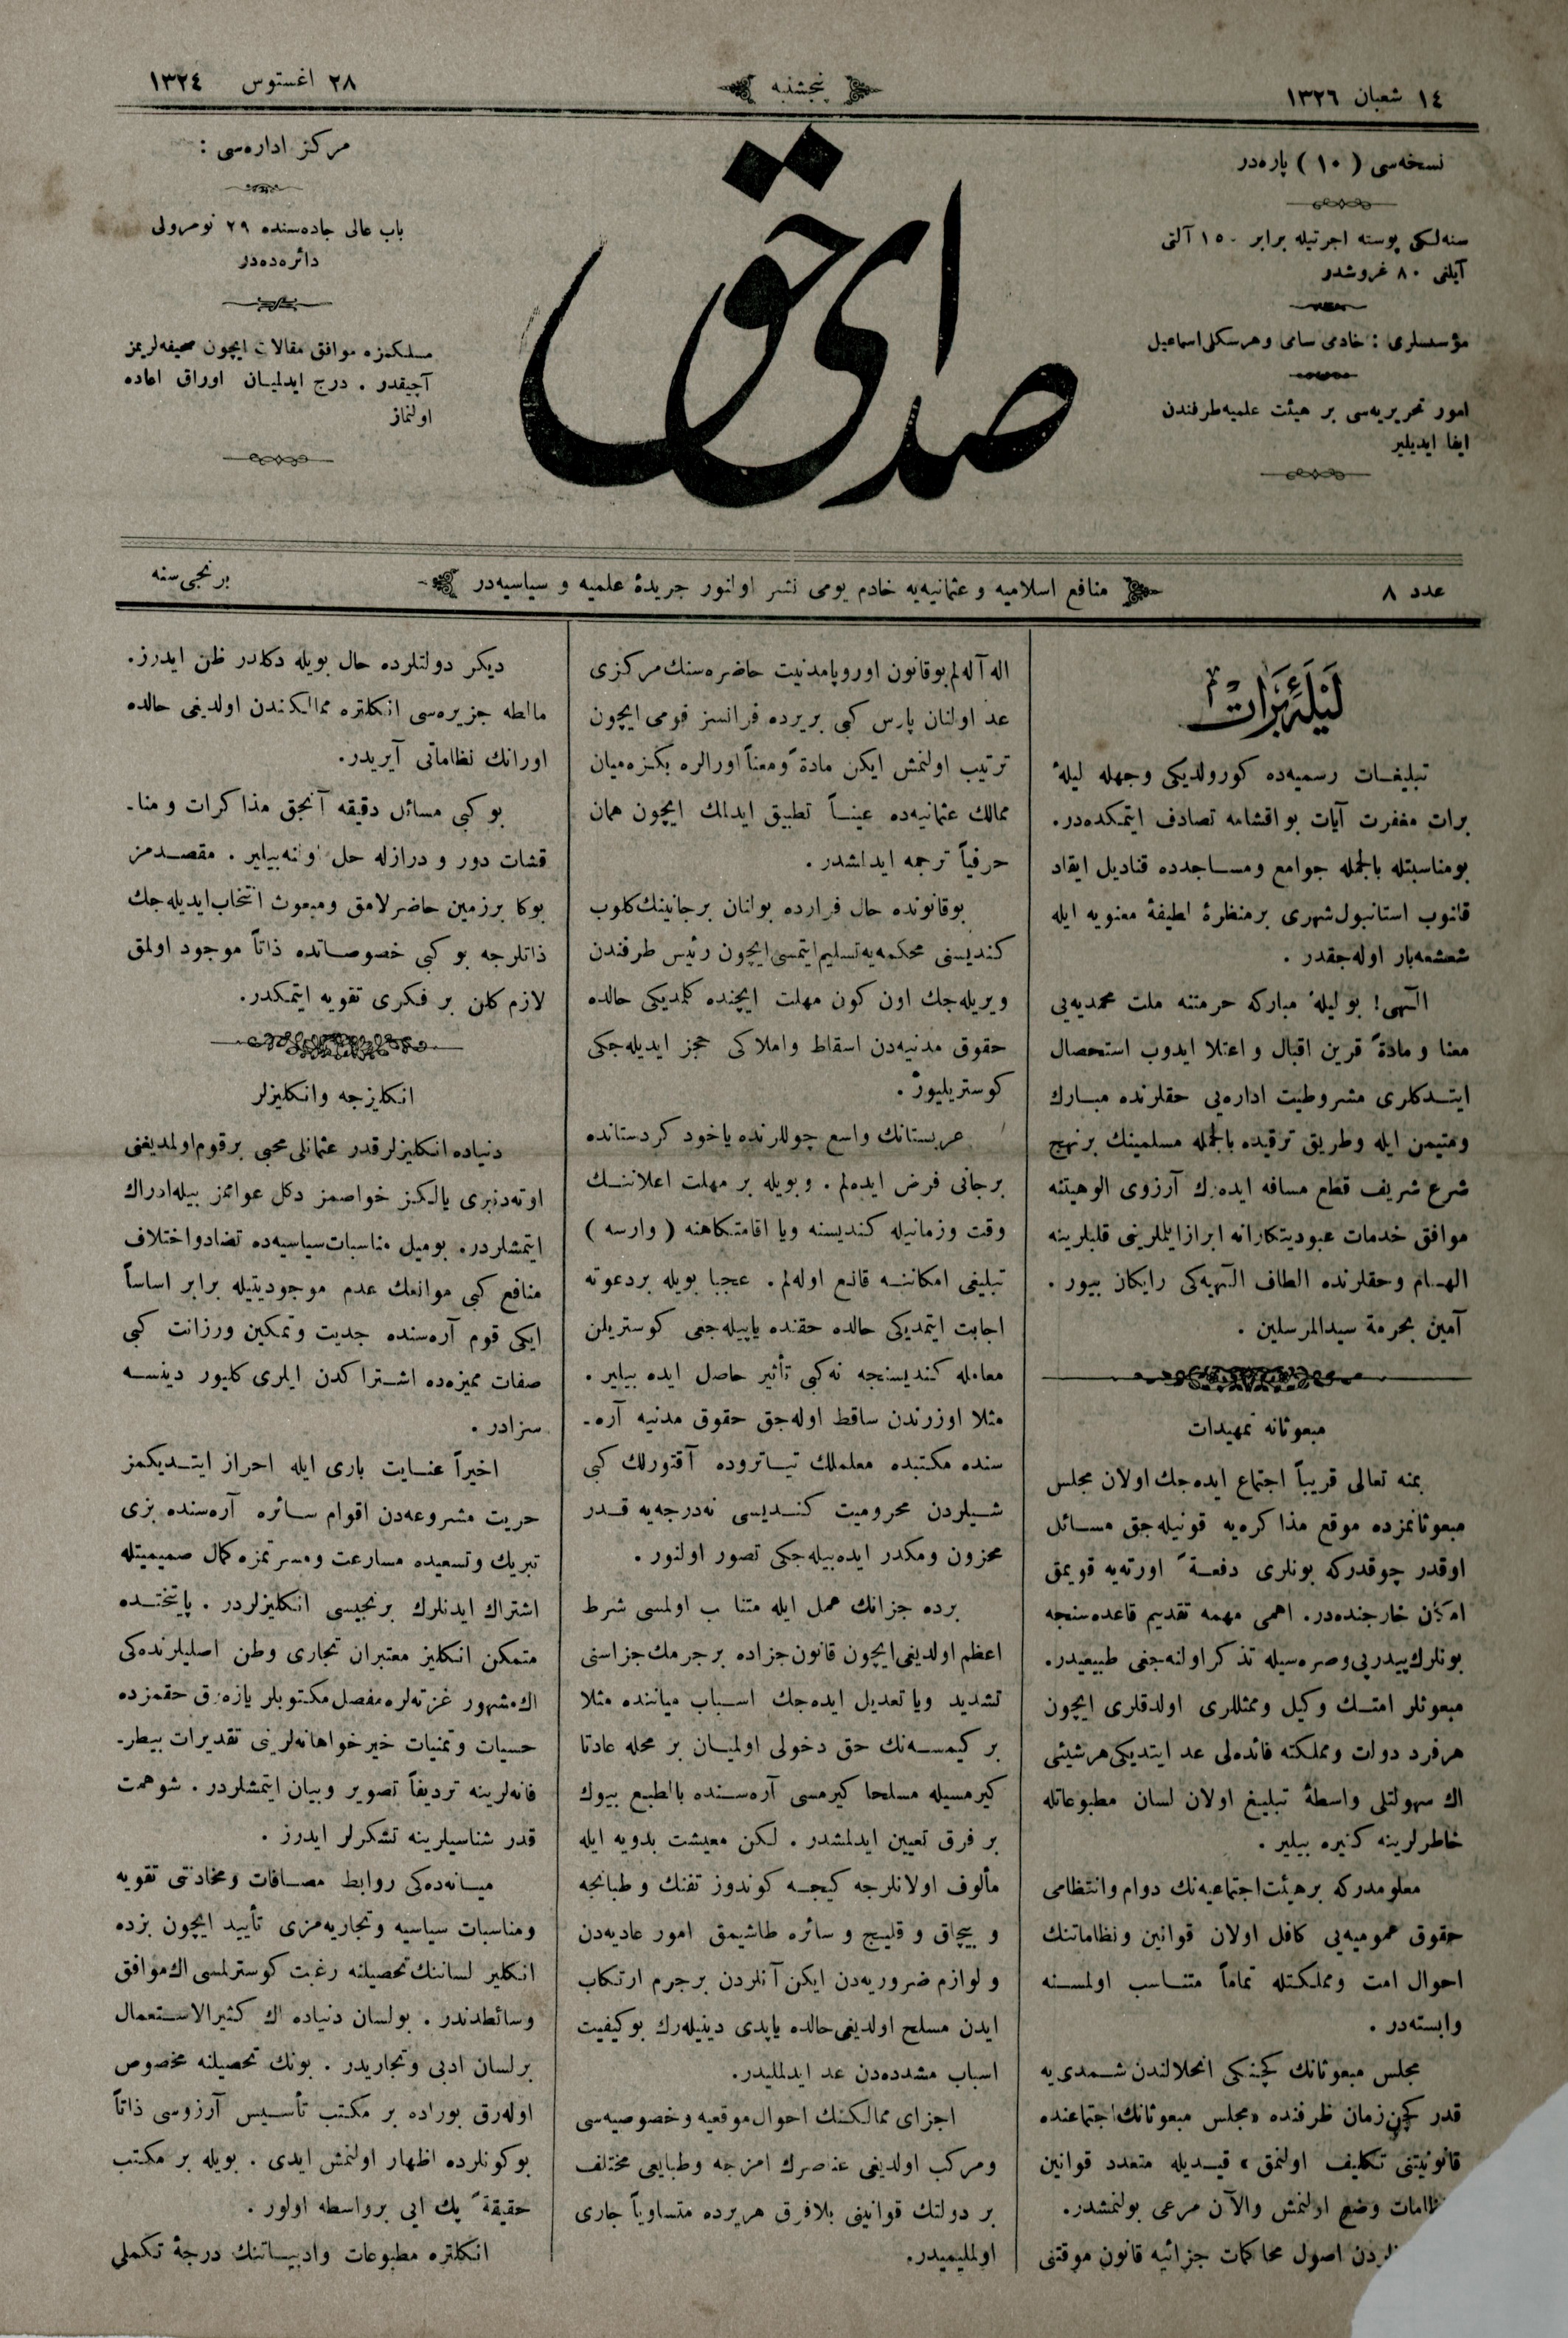 ١٤ شعبان ١٣٢٦
پنجشنبه
٢٨ اغستوس ١٣٢٤
نسخه‌سی ( ١٠ ) پاره‌در
سنه‌لكی پوسته اجرتیله برابر ١٥٠ آلتی
آیلغی ٨٠ غروشدر
مؤسسلری : خادمی سامی و هرسكلی اسماعیل
امور تحریریه‌سی بر هیئت علمیه طرفندن
ایفا ایدیلیر
صدای حق
مركز اداره‌سی :
باب عالی جاده‌سنده ٢٩ نومرولی
دائره‌ده‌در
مسلكمزه موافق مقالات ایچون صحیفه‌لریمز
آچیقدر . درج ایدلمیان اوراق اعاده
اولنماز
عدد ٨
منافع اسلامیه و عثمانیه‌یه خادم یومی نشر اولنور جریدهٔ علمیه و سیاسیه‌در
برنجی سنه
لیلهٔ برات
تبلیغات رسمیه‌ده كورولدیكی وجهله لیلهٔ
برات مغفرت آیات بو اقشامه تصادف ایتمكده‌در.
بومناسبتله بالجمله جوامع ومساجدده قنادیل ایقاد
قلنوب استانبول شهری برمنظرهٔ لطیفهٔ معنویه ایله
شعشعه‌بار اوله‌جقدر .
الٓهی! بو لیلهٔ مباركه حرمتنه ملت محمدیه‌یی
معنا و مادةً قرین اقبال و اعتلا ایدوب استحصال
ایتدكلری مشروطیت اداره‌یی حقلرنده مبارك
ومتیمن ایله وطریق ترقیده بالجمله مسلمینك برنهج
شرع شریف قطع مسافه ایده‌رك آرزوی الوهیتنه
موافق خدمات عبودیتكارانه ابرازایلملرینی قلبلرینه
الهام وحقلرنده الطاف الٓهیه‌كی رایكان بیور .
آمین بحرمة سیدالمرسلین .
مبعوثانه تمهیدات
بمنه تعالی قریباً اجتماع ایده‌جك اولان مجلس
مبعوثانمزده موقع مذاكره‌یه قونیله‌جق مسائل
اوقدر چوقدركه بونلری دفعةً اورته‌یه قویمق
امكان خارجنده‌در. اهمی مهمه تقدیم قاعده‌سنجه
بونلرك پیدرپی وصره‌سیله تذكر اولنه‌جغی طبیعیدر.
مبعوثلر امتك وكیل وممثللری اولدقلری ایچون
هرفرد دولت ومملكته فائده‌لی عد ایتدیكی هرشیئی
اك سهولتلی واسطهٔ تبلیغ اولان لسان مطبوعاتله
خاطرلرینه كتیره بیلیر .
معلومدركه برهیئت اجتماعیه‌نك دوام وانتظامی
حقوق عمومیه‌یی كافل اولان قوانین ونظاماتنك
احوال امت ومملكتله تماماً متناسب اولمسنه
وابسته‌در .
مجلس مبعوثانك كچنكی انحلالندن شمدی‌یه
قدر كچن زمان ظرفنده «مجلس مبعوثانك اجتماعنده
قانونیتنی تكلیف اولنمق» قیدیله متعدد قوانین
وضع اولنمش والآن مرعی بولنمشدر.
اصول محاكمات جزائیه قانون موقتنی
اله آله‌لم بوقانون اوروپا مدنیت حاضره‌سنك مركزی
عد اولنان پارس كبی بریرده فرانسز قومی ایچون
ترتیب اولنمش ایكن مادةً ومعناً اورالره بكزه‌میان
ممالك عثمانیه‌ده عیناً تطبیق ایدلمك ایچون همان
حرفیاً ترجمه ایدلشدر .
بوقانونده حال فرارده بولنان برجانینك كلوب
كندیسنی محكمه‌یه تسلیم ایتمسی ایچون رئیس طرفندن
ویریله‌جك اون كون مهلت ایچنده كلمدیكی حالده
حقوق مدنیه‌دن اسقاط واملاكی حجز ایدیله‌جكی
كوستریلیور .
عربستانك واسع چوللرنده یاخود كردستانده
برجانی فرض ایده‌لم . وبویله بر مهلت اعلاننك
وقت وزمانیله كندیسنه ویا اقامتكاهنه ( وارسه )
تبلیغی امكاننه قانع اوله‌لم . عجبا بویله بردعوته
اجابت ایتمدیكی حالده حقنده یاپیله‌جغی كوستریلن
معامله كندیسنجه نه‌كبی تأثیر حاصل ایده بیلیر .
مثلا اوزرندن ساقط اوله‌جق حقوق مدنیه آره-
سنده مكتبده معلملك تیاتروده آقتورلك كبی
شیلردن محرومیت كندیسی نه‌درجه‌یه قدر
محزون ومكدر ایده‌بیله‌جكی تصور اولنور .
برده جزانك عمل ایله متناسب اولمسی شرط
اعظم اولدیغی ایچون قانون جزاده برجرمك جزاسنی
تشدید ویا تعدیل ایده‌جك اسباب میاننده مثلا
بر كیمسه‌نك حق دخولی اولمیان بر محله عادتا
كیرمسیله مسلحا كیرمسی آره‌سنده بالطبع بیوك
بر فرق تعیین ایدلمشدر . لكن معیشت بدویه ایله
مألوف اولانلرجه كیجه كوندوز تفنك و طبانجه
و بیچاق و قلیج و سائره طاشیمق امور عادیه‌دن
و لوازم ضروریه‌دن ایكن آنلردن برجرم ارتكاب
ایدن مسلح اولدیغی حالده یاپدی دینیله‌رك بوكیفیت
اسباب مشدده‌دن عد ایدلملیدر.
اجزای ممالكتك احوال موقعیه وخصوصیه‌سی
ومركب اولدیغی عناصرك امزجه وطبایعی مختلف
بر دولتك قوانینی بلافرق هریرده متساویاً جاری
اولملیمیدر.
دیكر دولتلرده حال بویله دكلدر ظن ایدرز.
مالطه جزیره‌سی انكلتره ممالكندن اولدیغی حالده
اورانك نظاماتی آیریدر.
بو كبی مسائل دقیقه آنجق مذاكرات و منا-
قشات دور و درازله حل اولنه‌بیلیر . مقصدمز
بوكا برزمین حاضرلامق ومبعوث انتخاب ایدیله‌جك
ذاتلرجه بو كبی خصوصاتده ذاتاً موجود اولمق
لازم كلن بر فكری تقویه ایتمكدر.
انكلیزجه وانكلیزلر
دنیاده انكلیزلر قدر عثمانلی محبی برقوم اولمدیغنی
اوته‌دنبری یالكز خواصمز دكل عوامز بیله ادراك
ایتمشلردر. بومیل مناسبات سیاسیه‌ده تضاد واختلاف
منافع كبی موانعك عدم موجودیتیله برابر اساساً
ایكی قوم آره‌سنده جدیت وتمكین ورزانت كبی
صفات ممیزه‌ده اشتراكدن ایلری كلیور دینسه
سزادر .
اخیراً عنایت باری ایله احراز ایتدیكمز
حریت مشروعه‌دن اقوام سائره آره‌سنده بزی
تبریك وتسعیده مسارعت ومسرتمزه كمال صمیمیتله
اشتراك ایدنلرك برنجیسی انكلیزلردر . پایتختده
متمكن انكلیز معتبران تجاری وطن اصلیلرنده‌كی
اك مشهور غزته‌لره مفصل مكتوبلر یازه‌رق حقمزده
حسیات وتمنیات خیرخواهانه‌لرینی تقدیرات بیطر-
فانه‌لرینه تردیفاً تصویر وبیان ایتمشلردر . شو همت
قدر شناسیلرینه تشكرلر ایدرز .
میانه‌ده‌كی روابط مصافات ومخادنتی تقویه
ومناسبات سیاسیه وتجاریه‌مزی تأیید ایچون بزده
انكلیز لساننك تحصیلنه رغبت كوسترلمسی اك موافق
وسائطدندر . بولسان دنیاده اك كثیرالاستعمال
برلسان ادبی وتجاریدر . بونك تحصیلنه مخصوص
اوله‌رق بوراده بر مكتب تأسیس آرزوسی ذاتاً
بوكونلرده اظهار اولنمش ایدی . بویله بر مكتب
حقیقةً پك ایی برواسطه اولور .
انكلتره مطبوعات وادبیاتنك درجهٔ تكملی